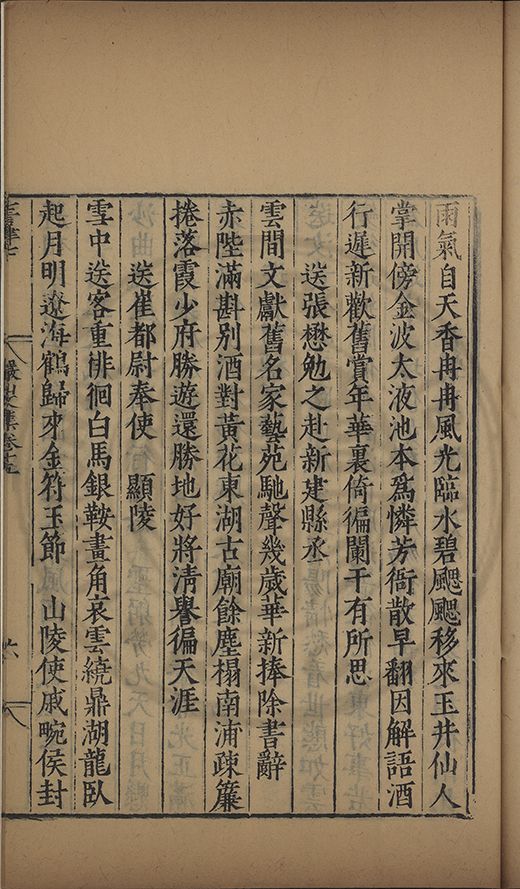 雨氣自天香冉冉風光臨水碧颸颸移來玉井仙人
掌開傍金波太液池本爲憐芳衙散早翻因解語酒
行遲新歡舊賞年華裏倚徧闌干有所思
送張懋勉之赴新建縣丞
雲間文獻舊名家藝苑馳聲幾歲華新捧除書辭
赤陛滿斟別酒對黃花東湖古廟餘塵榻南浦疎簾
捲落霞少府勝遊還勝地好將清譽徧天涯
送崔都尉奉使 顯陵
雪中送客重徘徊白馬銀鞍畫角哀雲繞鼎湖龍臥
起月明遼海鶴歸來金符玉節 山陵使戚畹侯封